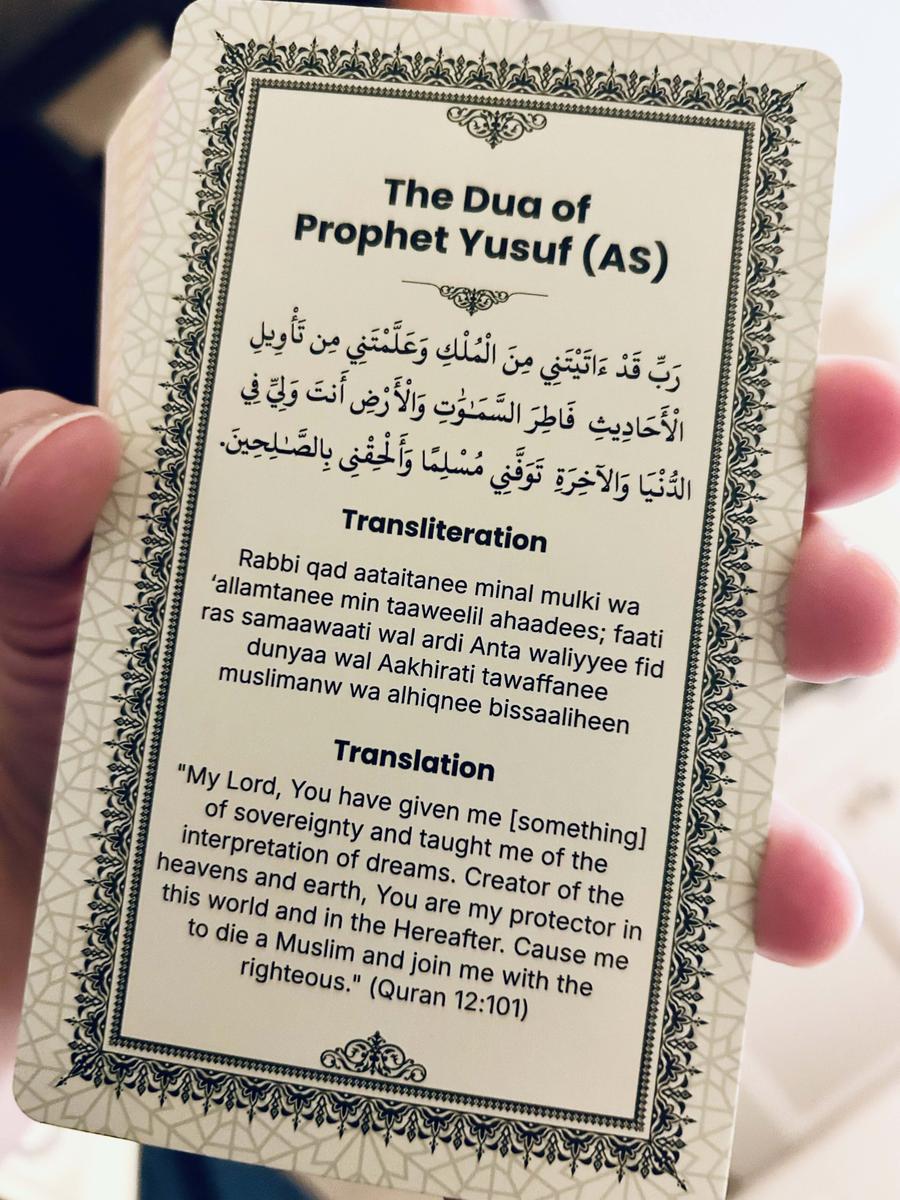 The Dua of
Prophet Yusuf (AS)
رَبِّ قَدْ ءَاتَيْتَنِي مِنَ الْمُلْكِ وَعَلَّمْتَنِي مِن تَأْوِيلِ
الْأَحَادِيثِ فَاطِرَ السَّمَـٰوَٰتِ وَالْأَرْضِ أَنتَ وَلِيِّ فِي
الدُّنْيَا وَالآخِرَةِ تَوَفَّنِي مُسْلِمًا وَأَلْحِقْنِى بِالصَّـٰلِحِينَ.
Transliteration
Rabbi qad aataitanee minal mulki wa
‘allamtanee min taaweelil ahaadees; faati
ras samaawaati wal ardi Anta waliyyee fid
dunyaa wal Aakhirati tawaffanee
muslimanw wa alhiqnee bissaaliheen
Translation
"My Lord, You have given me [something]
of sovereignty and taught me of the
interpretation of dreams. Creator of the
heavens and earth, You are my protector in
this world and in the Hereafter. Cause me
to die a Muslim and join me with the
righteous." (Quran 12:101)